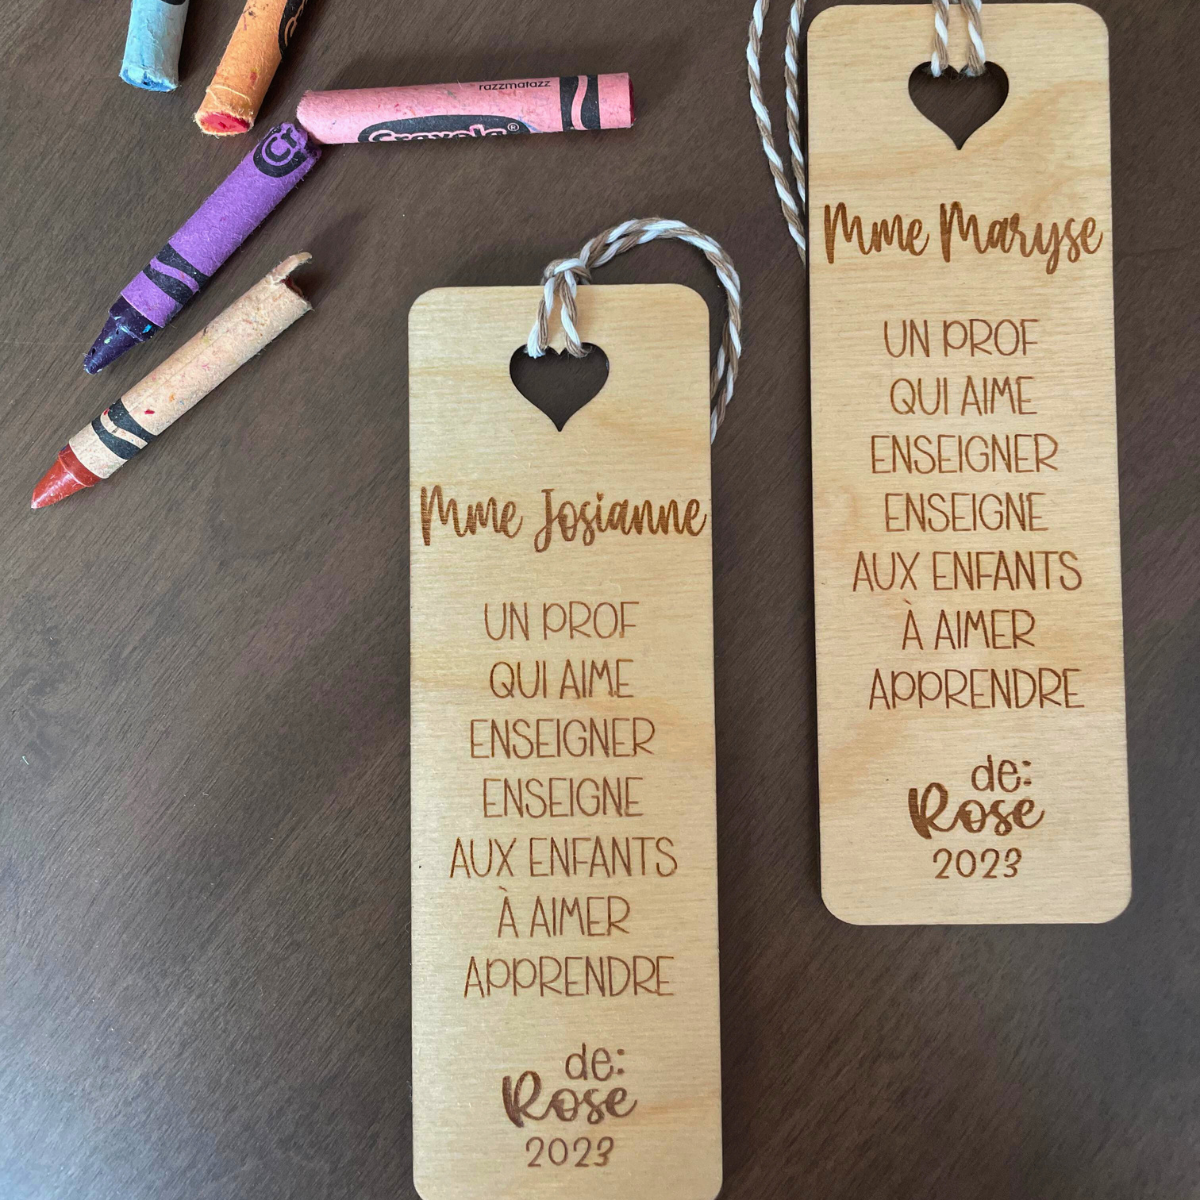 razzmatazz
Crayola®
Cr
Mme Josianne
UN PROF
QUI AIME
ENSEIGNER
ENSEIGNE
AUX ENFANTS
À AIMER
APPRENDRE
de:
Rose
2023
Mme Maryse
UN PROF
QUI AIME
ENSEIGNER
ENSEIGNE
AUX ENFANTS
À AIMER
APPRENDRE
de:
Rose
2023